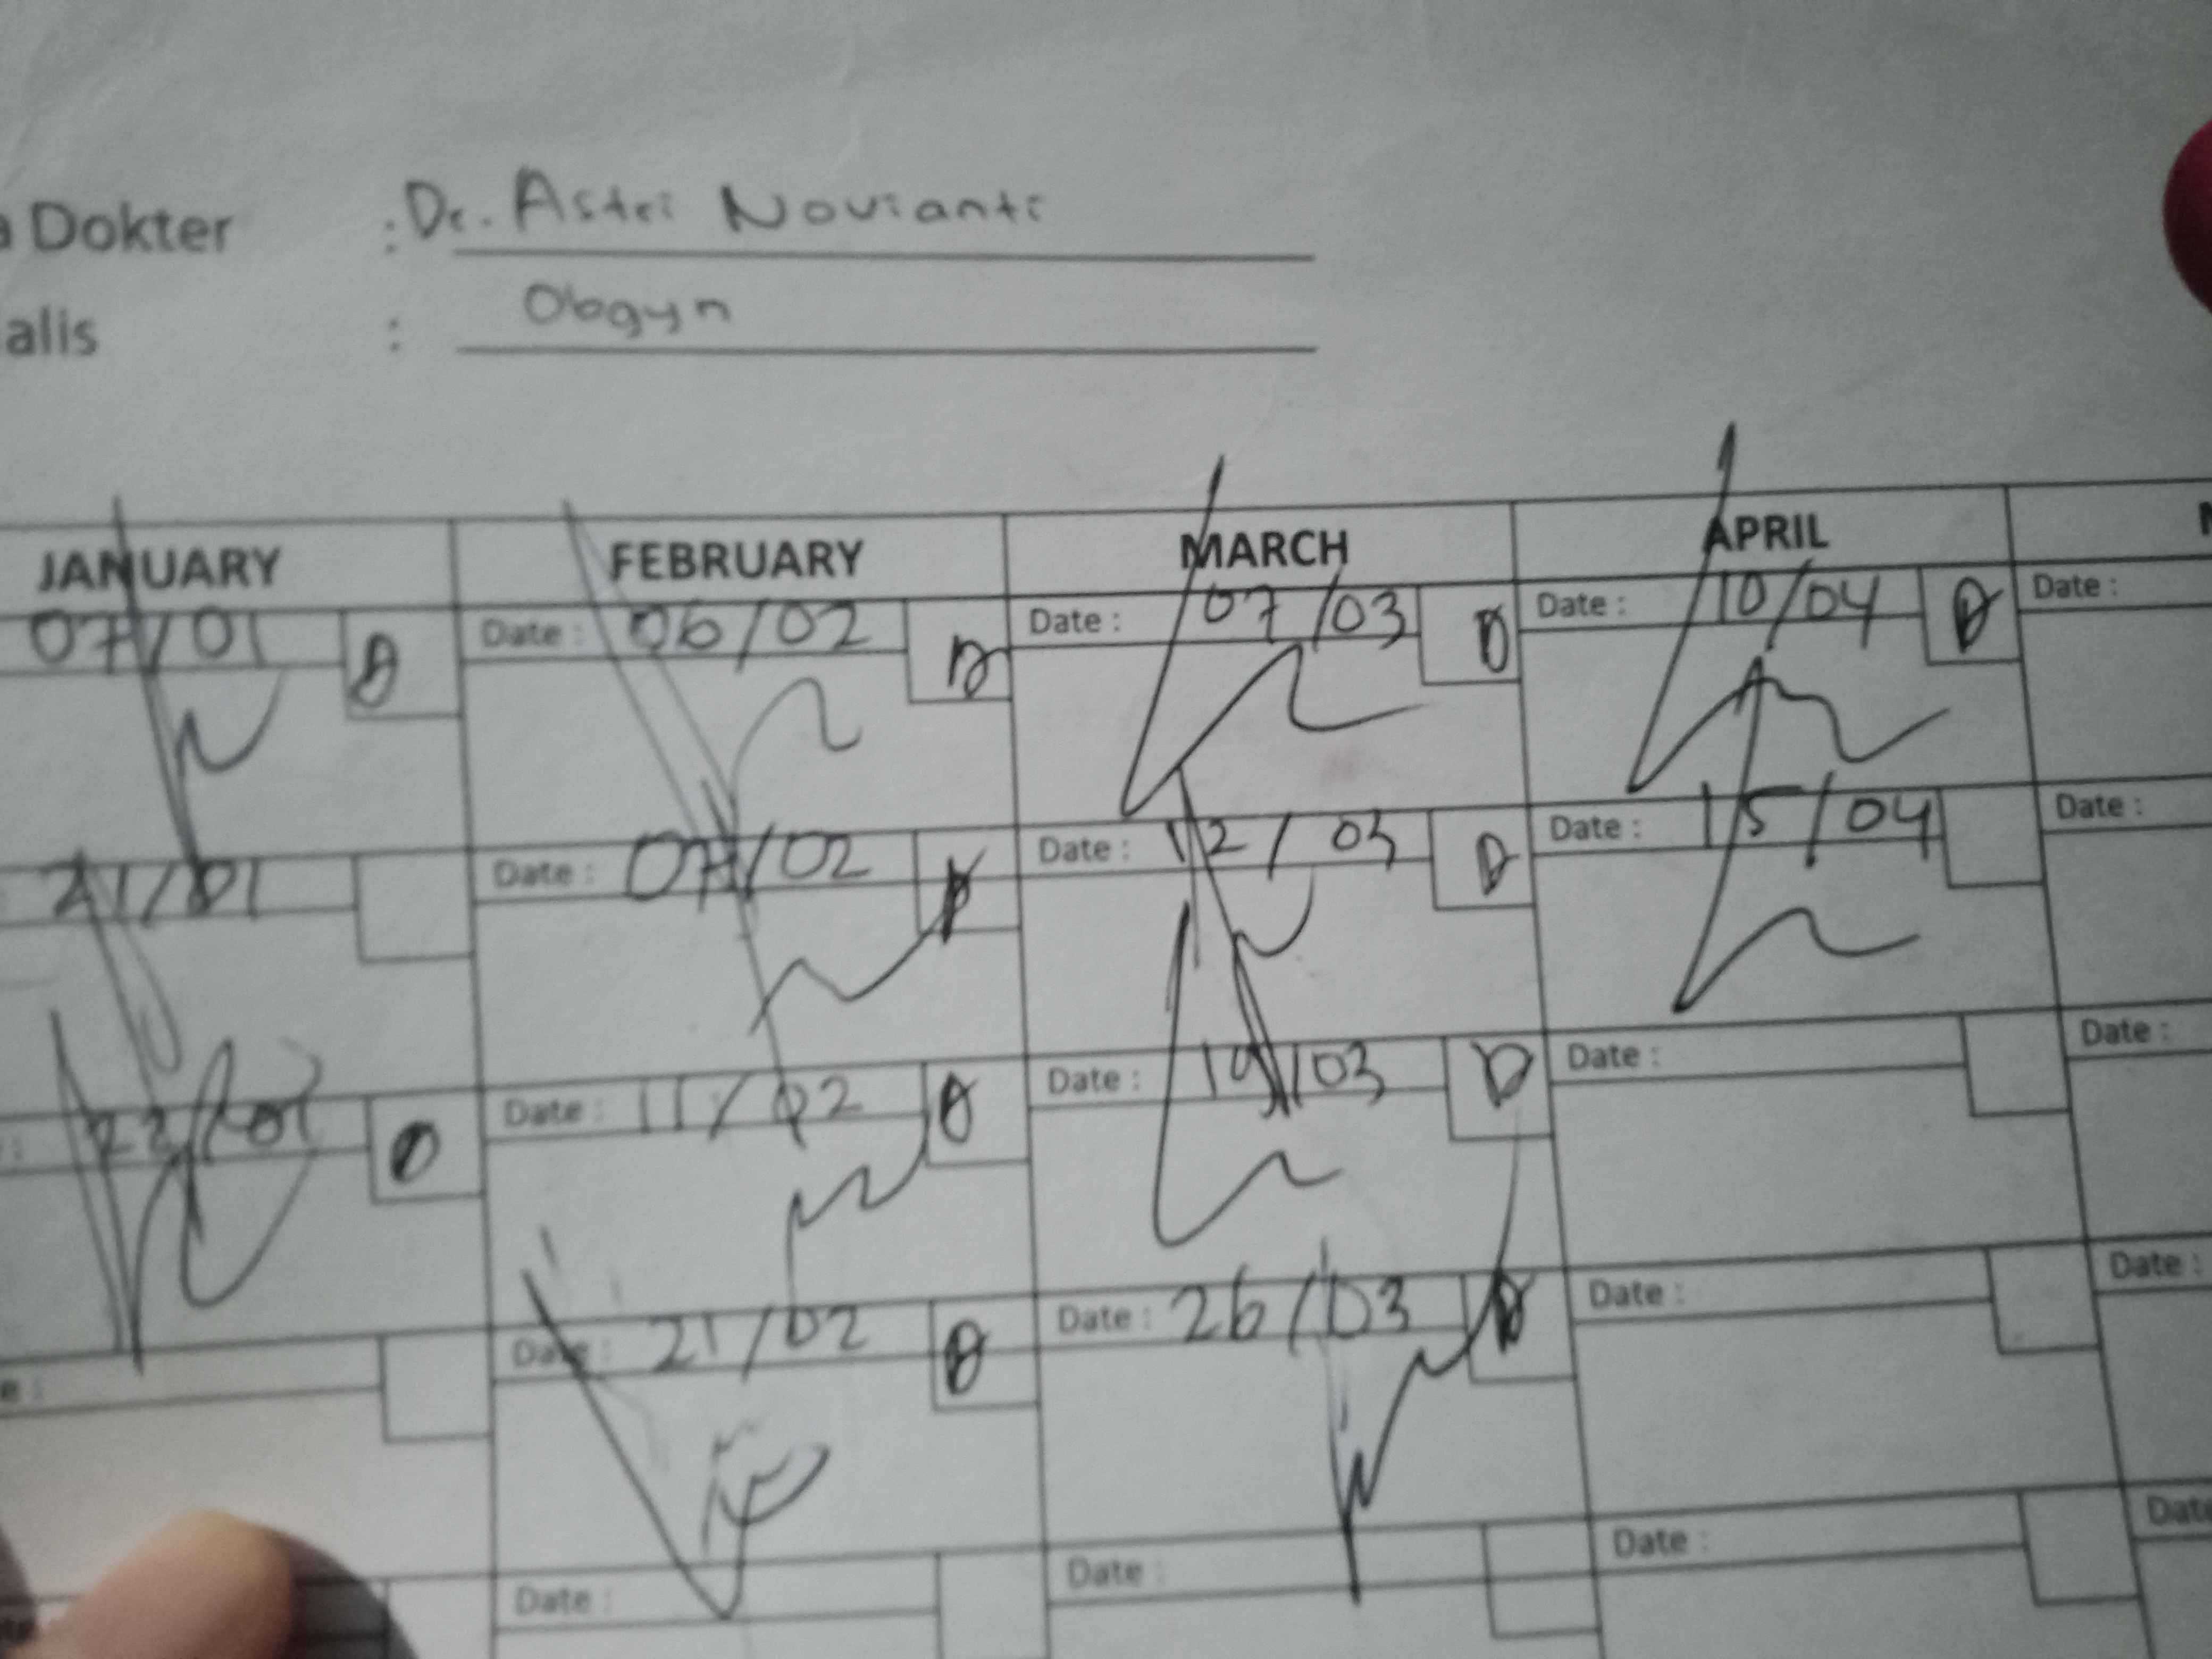 a Dokter : Dr. Astri Novianti
alis : Obgyn
JANUARY FEBRUARY MARCH APRIL
07/01 Date : 06/02 Date : 07/03 Date : 10/04 Date :
21/01 Date : 07/02 Date : 12/03 Date : 15/04 Date :
: 22/01 Date : 11/02 Date : 19/03 Date : Date :
e : Date : 21/02 Date : 26/03 Date : Date :
Date : Date : Date : Date